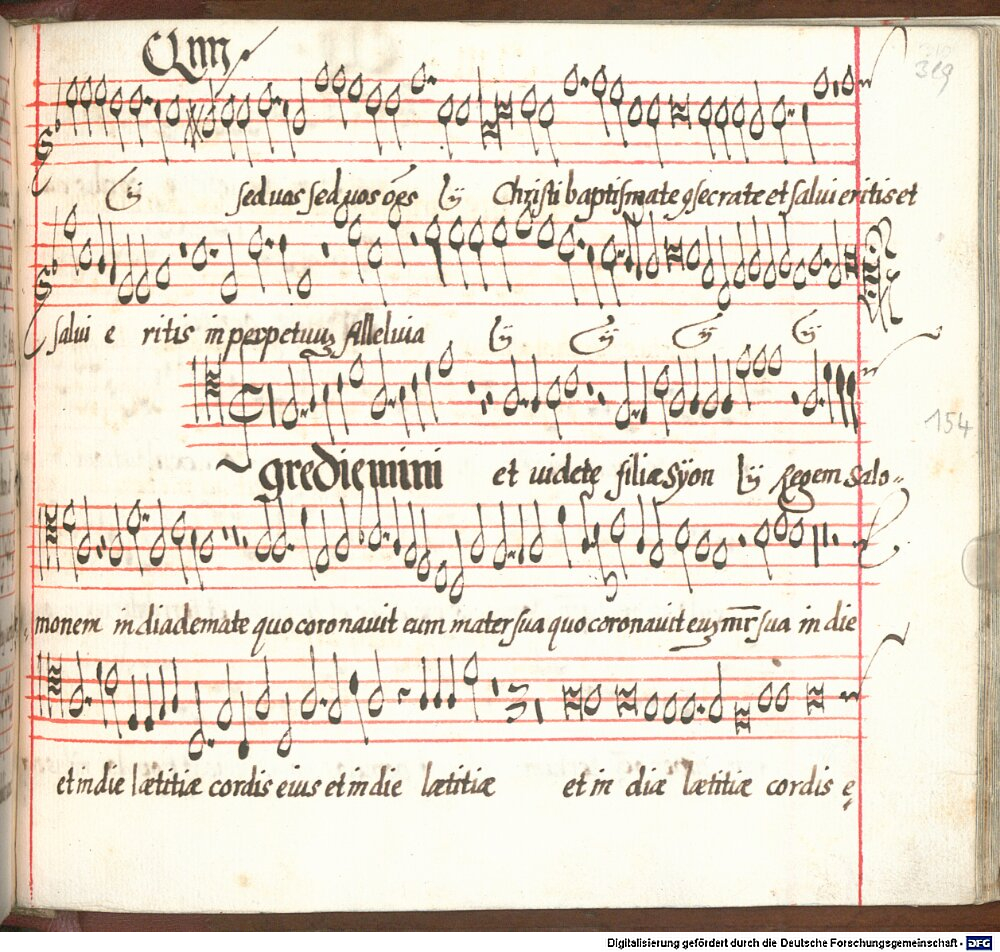 389
ij sed uos sed uos oēs ij Christi baptismate gsecrate et salui eritis et
salui e ritis in perpetuuȝ Alleluia ij ij ij ij
154
gredimini et uidete filiæ Sÿon ij Regem Salo-
monem in diademate quo coronauit eum mater sua quo coronauit euȝ mr̄ sua in die
et in die lætitiæ cordis eius et in die lætitiæ et in diæ lætitiæ cordis e
Digitalisierung gefördert durch die Deutsche Forschungsgemeinschaft - DFG